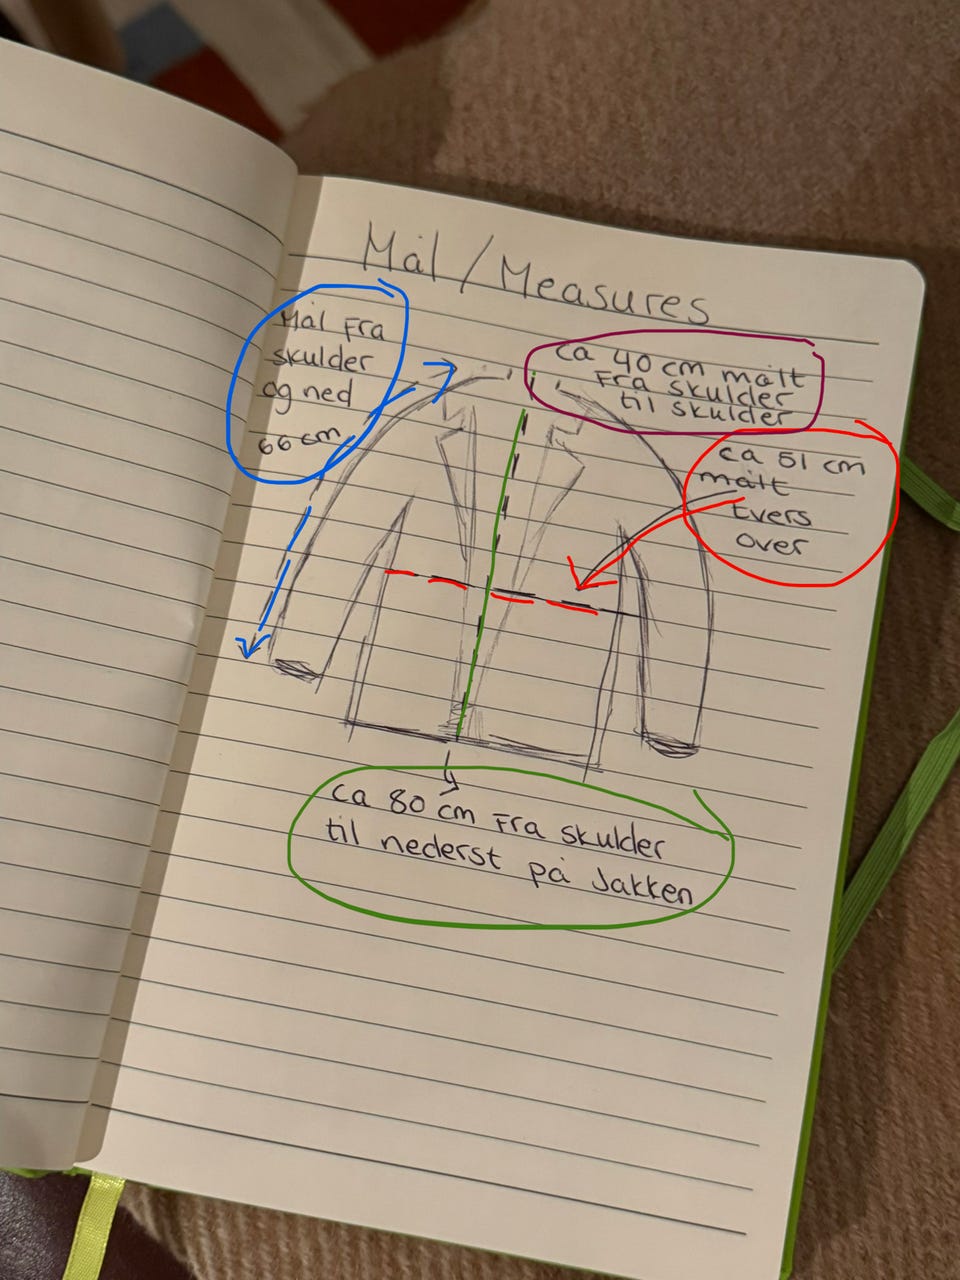 Mål / Measures
Mål Fra
skulder
og ned
66 cm
ca 40 cm målt
Fra skulder
til skulder
ca 51 cm
målt
tvers
over
ca 80 cm Fra skulder
til nederst på Jakken